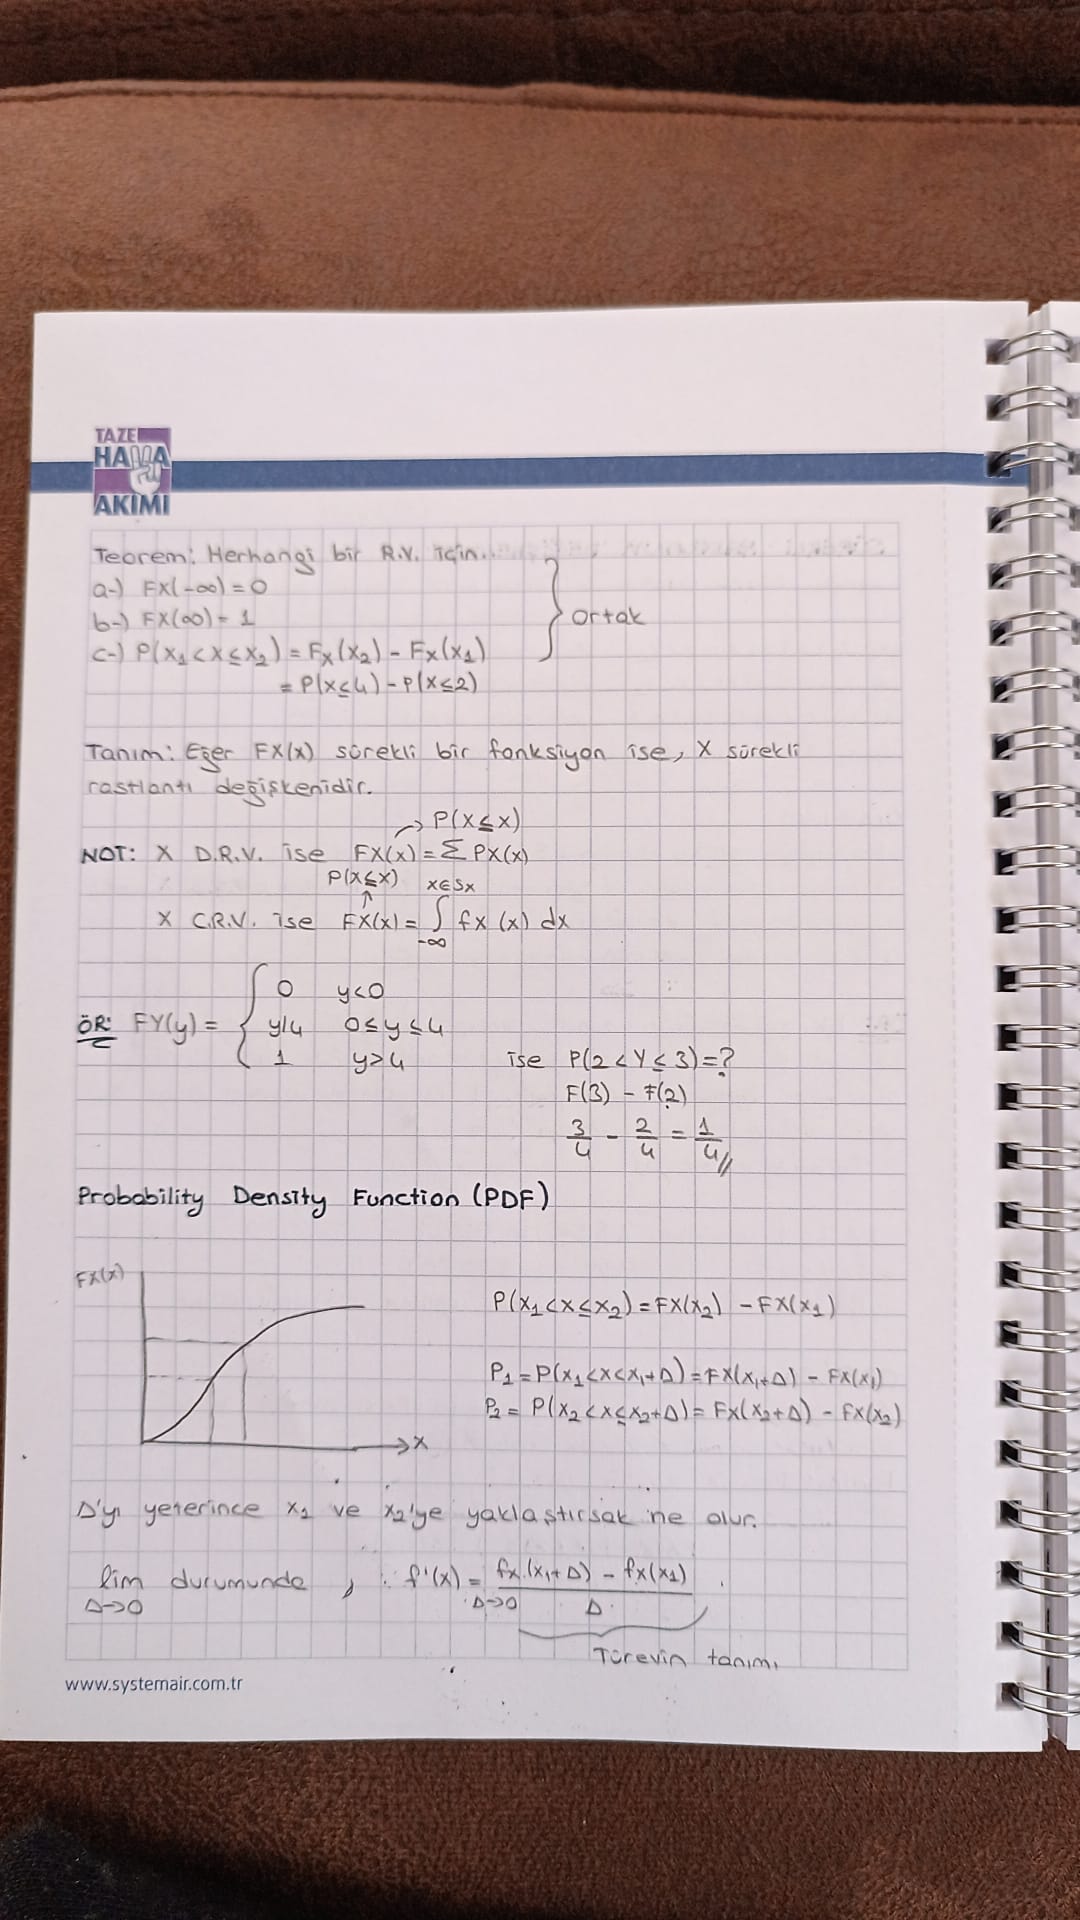 TAZE
HAVA
AKIMI
Teorem: Herhangi bir R.V. için.
a-) FX(-∞) = 0
b-) FX(∞) = 1
c-) P(x₁ < X ≤ x₂) = Fₓ(x₂) - Fₓ(x₁)
} ortak
= P(X ≤ 4) - P(X ≤ 2)
Tanım: Eğer FX(x) sürekli bir fonksiyon ise, X sürekli
rastlantı değişkenidir.
→ P(X ≤ x)
NOT: X D.R.V. ise FX(x) = Σ PX(x)
P(X ≤ x) x∈Sx
↑
X C.R.V. ise FX(x) = ∫ fx (x) dx
-∞
0 y<0
ÖR: FY(y) = { y/4 0 ≤ y ≤ 4
1 y>4 ise P(2 < Y ≤ 3) = ?
F(3) - F(2)
3/4 - 2/4 = 1/4 //
Probability Density Function (PDF)
FX(x)
P(x₁ < x ≤ x₂) = FX(x₂) - FX(x₁)
P₁ = P(x₁ < x < x₁+Δ) = FX(x₁+Δ) - FX(x₁)
P₂ = P(x₂ < x ≤ x₂+Δ) = FX(x₂+Δ) - FX(x₂)
→ x
Δ'yı yeterince x₁ ve x₂'ye yaklaştırsak ne olur.
lim durumunda , f'(x) = fx (x₁+Δ) - fx(x₁)
Δ→0 Δ→0 Δ
Türevin tanımı
www.systemair.com.tr